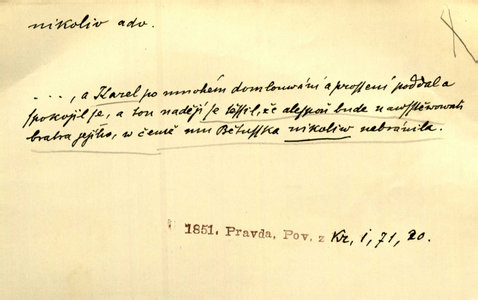 nikoliv adv.
. . . ., a Karel po mnohém domlouvání a prossení poddal a
spokojil se, a tou nadějí se těssil, že alespoň bude nawsstěwowati
bratra jejího, w čemž mu Bětusska nikoliw nebránila.
1851. Pravda, Pov. z Kr, i, 71, 20.